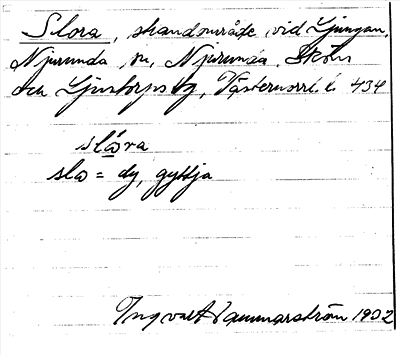 Slora, strandområde vid Ljungan,
Njurunda sn, Njurunda, Sköns
och Ljustorps tg, Västernorrl. l. 434
slåra
slo = dy, gyttja
Ingvart Hammarström 1932